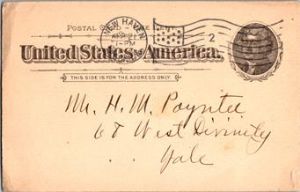 POSTAL
NEW HAVEN
2
United States of America.
THIS SIDE IS FOR THE ADDRESS ONLY.
Mr. H. M. Poynter
68 West Divinity
Yale